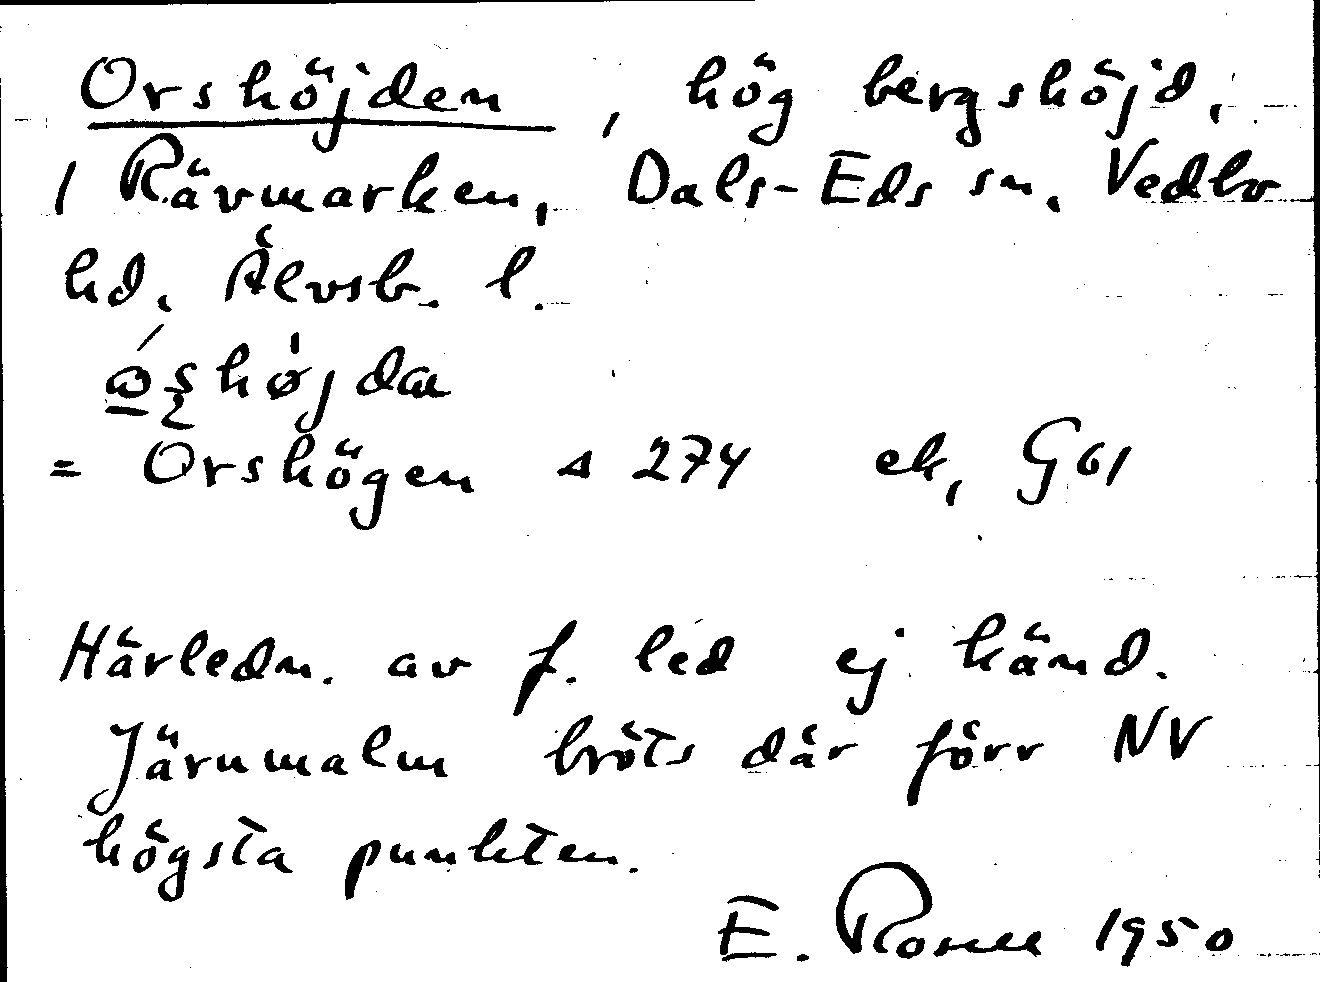 Orshöjden, hög bergshöjd,
i Rävmarken, Dals-Eds sn, Vedbo
hd, Älvsb. l.
= Orshögen ▵ 274 ek, G61
Härledn. av f. led ej känd.
Järnmalm bröts där förr NV
högsta punkten.
E. Rosell 1950